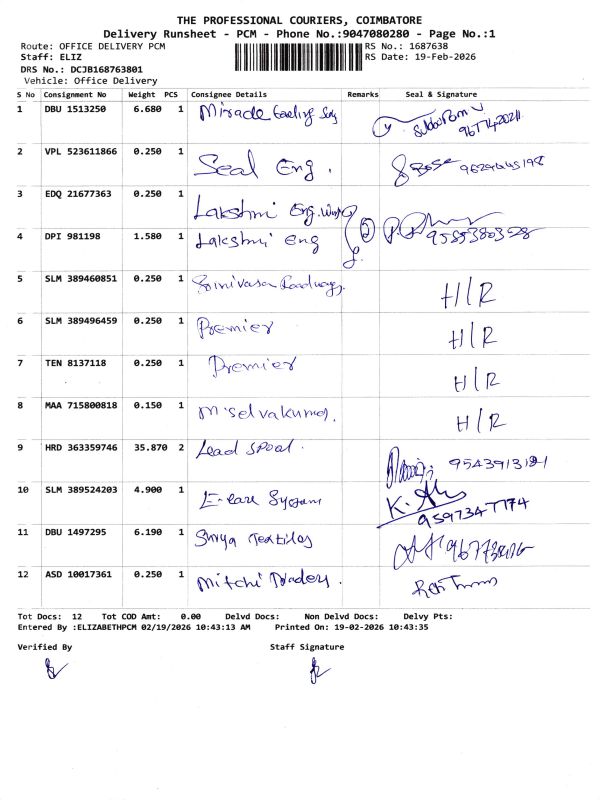 THE PROFESSIONAL COURIERS, COIMBATORE
Delivery Runsheet - PCM - Phone No.:9047080280 - Page No.:1
Route: OFFICE DELIVERY PCM RS No.: 1687638
Staff: ELIZ RS Date: 19-Feb-2026
DRS No.: DCJB168763801
Vehicle: Office Delivery
S No Consignment No Weight PCS Consignee Details Remarks Seal & Signature
1 DBU 1513250 6.680 1
2 VPL 523611866 0.250 1 Seal Eng.
3 EDQ 21677363 0.250 1 Lakshmi Eng. Works
4 DPI 981198 1.580 1 Lakshmi Eng
5 SLM 389460851 0.250 1 Srinivasa Roadways. H/R
6 SLM 389496459 0.250 1 Premier H/R
7 TEN 8137118 0.250 1 Premier H/R
8 MAA 715800818 0.150 1 M. Selvakumar. H/R
9 HRD 363359746 35.870 2 Lead Spoal.
10 SLM 389524203 4.900 1 E-care 9597347774
11 DBU 1497295 6.190 1 Textiles
12 ASD 10017361 0.250 1 Mitchi Traders.
Tot Docs: 12 Tot COD Amt: 0.00 Delvd Docs: Non Delvd Docs: Delvy Pts:
Entered By :ELIZABETHPCM 02/19/2026 10:43:13 AM Printed On: 19-02-2026 10:43:35
Verified By Staff Signature